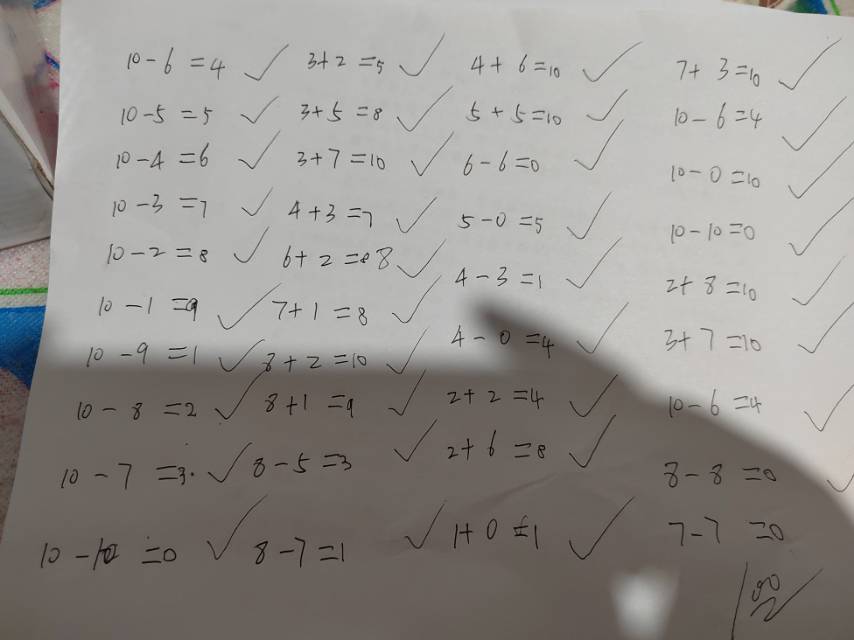 10-6=4 ✓ 3+2=5 ✓ 4+6=10 ✓ 7+3=10 ✓
10-5=5 ✓ 3+5=8 ✓ 5+5=10 ✓ 10-6=4 ✓
10-4=6 ✓ 3+7=10 ✓ 6-6=0 ✓ 10-0=10 ✓
10-3=7 ✓ 4+3=7 ✓ 5-0=5 ✓ 10-10=0 ✓
10-2=8 ✓ 6+2=8 ✓ 4-3=1 ✓ 2+8=10 ✓
10-1=9 ✓ 7+1=8 ✓ 4-0=4 ✓ 3+7=10 ✓
10-9=1 ✓ 8+2=10 ✓ 2+2=4 ✓ 10-6=4 ✓
10-8=2 ✓ 8+1=9 ✓ 2+6=8 ✓ 8-8=0 ✓
10-7=3. ✓ 8-5=3 ✓ 1+0=1 ✓ 7-7=0
10-10=0 ✓ 8-7=1 ✓
100 ✓